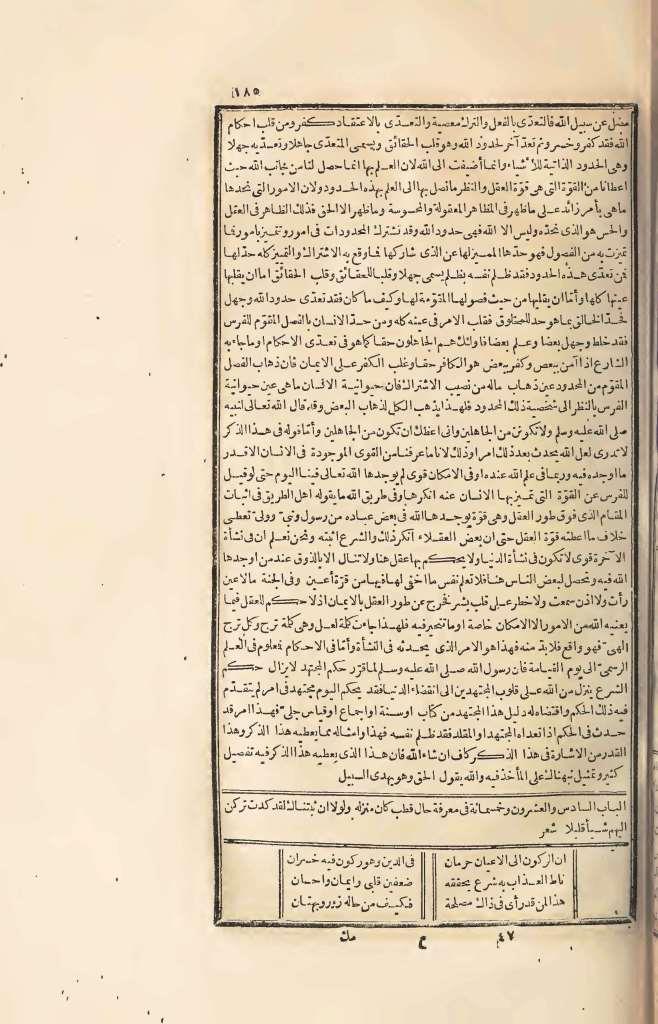 ١٨٥
مضل عن سبيل الله فالتعدى بالفعل والترك معصية والتعدى بالاعتقاد كفر ومن قلب احكام
الله فقد كفر وخسر وثم تعد آخر لحدود الله وهو قلب الحقائق ويسمى المتعدى جاهلا وتعديه جهلا
وهى الحدود الذاتية للأشياء وانما أضيفت الى الله لان العلم بها انما حصل لنا من جانب الله حيث
اعطانا من القوة التى هى قوة العقل والنظر ما نصل بها الى العلم بهذه الحدود ولان الامور التى نحدها
ما هى بأمر زائد على ما ظهر فى المظاهر المعقولة والمحسوسة وما ظهر الا الحق فذلك الظاهر فى العقل
والحس هو الذى نحده وليس الا الله فهى حدود الله وقد تشترك المحدودات فى امور وتتميز بامور فما
تميزت به من الفصول فهو حدها المميز لها عن الذى شاركها فما وقع به الاشتراك والتميز كله حد لها
فمن تعدى هذه الحدود فقد ظلم نفسه بظلم يسمى جهلا وقلبا للحقائق وقلب الحقائق اما ان يقلبها
عينها كلها واما ان يقلبها من حيث فصولها المقومة لها وكيف ما كان فقد تعدى حدود الله وجهل
فحد الخالق بما هو حد للمخلوق فقلب الامر فى عينه كله ومن حد الانسان بالفصل المقوم للفرس
فقد خلط وجهل بعضا وعلم بعضا فاولئك هم الجاهلون حقا كما هو فى تعدى الاحكام اوما جاء به
الشارع اذا آمن ببعض وكفر ببعض هو الكافر حقا وغلب الكفر على الايمان فان ذهاب الفصل
المقوم من المحدود عين ذهاب ماله من نصيب الاشتراك فان حيوانية الانسان ما هى عين حيوانية
الفرس بالنظر الى شخصية ذلك المحدود فلهذا يذهب الكل لذهاب البعض وقد قال الله تعالى لنبيه
صلى الله عليه وسلم ولا تكونن من الجاهلين وانى اعظك ان تكون من الجاهلين وأما قوله فى هذا الذكر
لا تدرى لعل الله يحدث بعد ذلك امرا وذلك لاناما عرفنا من القوى الموجودة فى الانسان الا قدر
ما اوجده فيه وربما فى علم الله عنده او فى الامكان قوى لم يوجدها الله تعالى فينا اليوم حتى لو قيل
للفرس عن القوة التى تميز بها الانسان عنه انكرها وفى طريق الله ما يقوله اهل الطريق فى اثبات
المقام الذى فوق طور العقل وهى قوة يوجدها الله فى بعض عباده من رسول ونبى وولى تعطى
خلاف ما اعطته قوة العقل حتى ان بعض العقلاء انكر ذلك والشرع اثبته ونحن نعلم ان فى نشأة
الآخرة قوى لا تكون فى نشأة الدنيا ولا يحكم بها عقل هنا ولا تنال الا بالذوق عند من اوجدها
الله فيه وتحصل لبعض الناس هنا فلا تعلم نفس ما اخفى لها فيها من قرة أعين وفى الجنة ما لا عين
رأت ولا اذن سمعت ولا خطر على قلب بشر فخرج عن طور العقل بالايمان اذ لا حكم للعقل فيما
يعينه الله من الامور الا الامكان خاصة او ما تتحير فيه فلهذا جاءت كلمة لعل وهى كلمة ترج وكل ترج
الهى فهو واقع فلا بد منه فهذا هو الامر الذى يحدثه فى النشأة وأما فى الاحكام فمعلوم فى العلم
الرسمى الى يوم القيامة فان رسول الله صلى الله عليه وسلم لما قرر حكم المجتهد لا يزال حكم
الشرع يتنزل من الله على قلوب المجتهدين الى انقضاء الدنيا فقد يحكم اليوم مجتهد فى امر لم يتقدم
فيه ذلك الحكم واقتضاه له دليل هذا المجتهد من كتاب او سنة او اجماع او قياس جلى فهذا امر قد
حدث فى الحكم اذا تعداه المجتهد او المقلد فقد ظلم نفسه فهذا وامثاله مما يعطيه هذا الذكر وهذا
القدر من الاشارة فى هذا الذكر كاف ان شاء الله فان هذا الذى يعطيه هذا الذكر فيه تفصيل
كثير وتمثيل نبهناك على المأخذ فيه والله يقول الحق وهو يهدى السبيل
الباب السادس والعشرون وخمسمائة فى معرفة حال قطب كان منزله ولولا ان ثبتناك لقد كدت تركن
اليهم شيأ قليلا شعر
ان الركون الى الاعيان حرمان فى الدين وهو ركون فيه خسران
ناط العذاب به شرع يحققه ضعفين قلبى وايمان واحسان
هذا لمن قد رأى فى ذاك مصلحة فكيف من حاله زور وبهتان
٤٧ ع مك